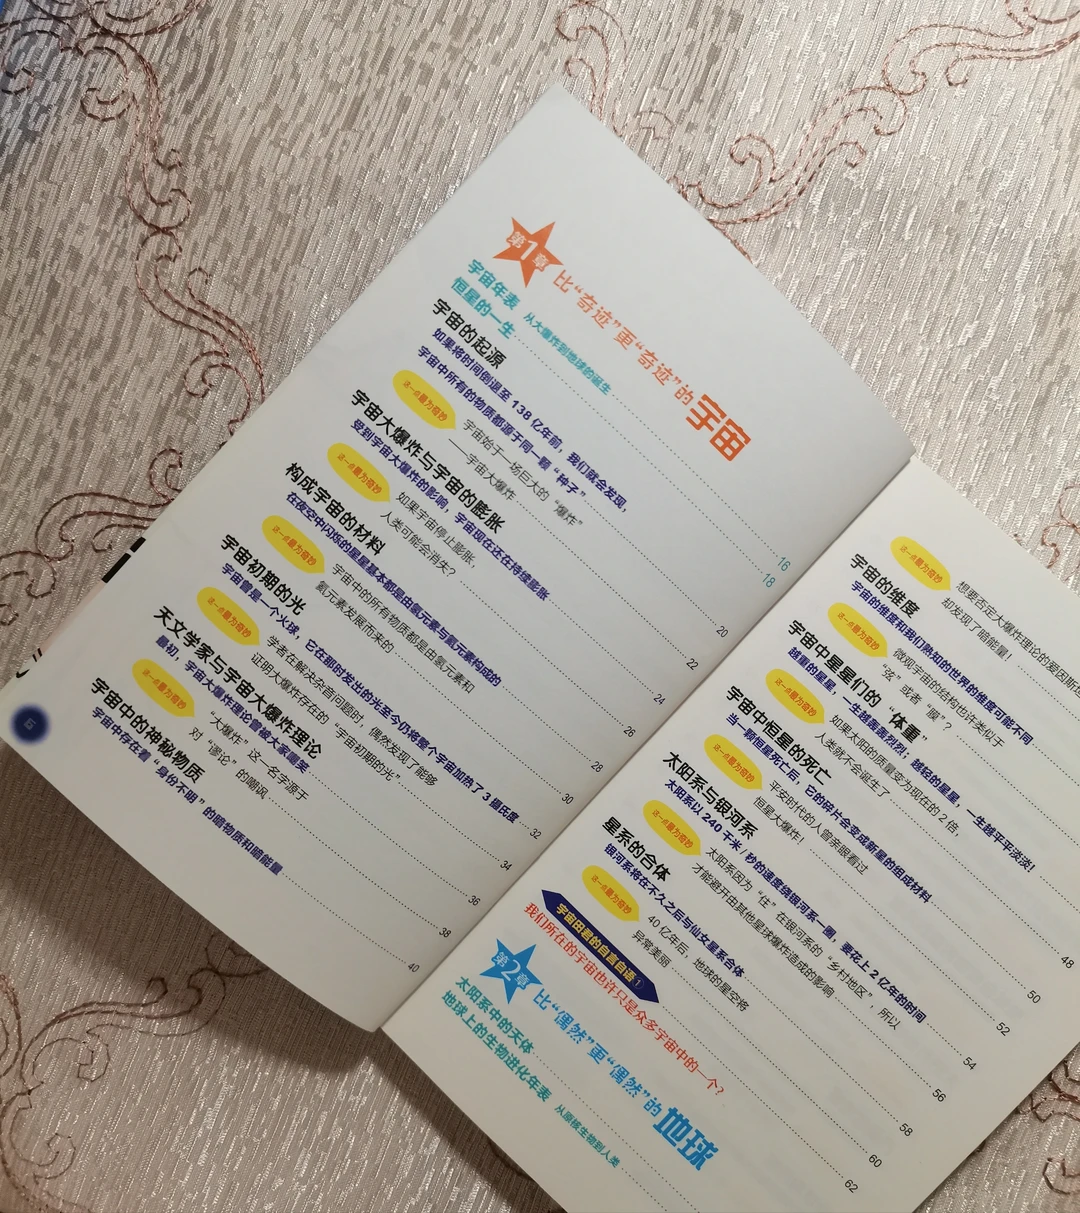 第1章 比“奇迹”更“奇迹”的宇宙
宇宙年表 从大爆炸到地球的诞生 16
恒星的一生 18
宇宙的起源
如果将时间倒退至 138 亿年前，我们就会发现，
宇宙中所有的物质都源于同一颗“种子” 20
这一点最为奇妙
宇宙始于一场巨大的“爆炸”
——宇宙大爆炸 22
宇宙大爆炸与宇宙的膨胀
受到宇宙大爆炸的影响，宇宙现在还在持续膨胀 24
这一点最为奇妙
如果宇宙停止膨胀，
人类可能会消失？ 26
构成宇宙的材料
在夜空中闪烁的星星基本都是由氢元素与氦元素构成的 28
这一点最为奇妙
宇宙中的所有物质都是由氢元素和
氦元素发展而来的 30
宇宙初期的光
宇宙曾是一个火球，它在那时发出的光至今仍将整个宇宙加热了 3 摄氏度 32
这一点最为奇妙
学者在解决杂音问题时，偶然发现了能够
证明大爆炸存在的“宇宙初期的光” 34
天文学家与宇宙大爆炸理论
最初，宇宙大爆炸理论曾被大家嘲笑 36
这一点最为奇妙
“大爆炸”这一名字源于
对“谬论”的嘲讽 38
宇宙中的神秘物质
宇宙中存在着“身份不明”的暗物质和暗能量 40
这一点最为奇妙
想要否定大爆炸理论的爱因斯坦
却发现了暗能量！
宇宙的维度
宇宙的维度和我们熟知的世界的维度可能不同
这一点最为奇妙
微观宇宙的结构也许类似于
“弦”或者“膜”？
宇宙中星星们的“体重”
越重的星星，一生越轰轰烈烈；越轻的星星，一生越平平淡淡！ 48
这一点最为奇妙
如果太阳的质量变为现在的 2 倍，
人类就不会诞生了 50
宇宙中恒星的死亡
当一颗恒星死亡后，它的碎片会变成新星的组成材料 52
这一点最为奇妙
平安时代的人曾亲眼看过
恒星大爆炸！ 54
太阳系与银河系
太阳系以 240 千米／秒的速度绕银河系一圈，要花上 2 亿年的时间 56
这一点最为奇妙
太阳系因为“住”在银河系的“乡村地区”，所以
才能避开由其他星球爆炸造成的影响 58
星系的合体
银河系将在不久之后与仙女星系合体 60
这一点最为奇妙
40 亿年后，地球的星空将
异常美丽 62
宇宙田君的自言自语①
我们所在的宇宙也许只是众多宇宙中的一个？
第2章 比“偶然”更“偶然”的地球
太阳系中的天体
地球上的生物进化年表 从原核生物到人类